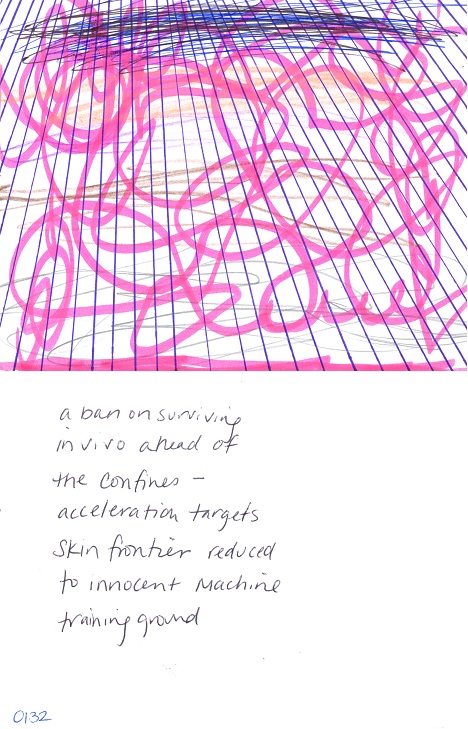 a ban on surviving
in vivo ahead of
the confines –
acceleration targets
skin frontier reduced
to innocent machine
training ground
0132